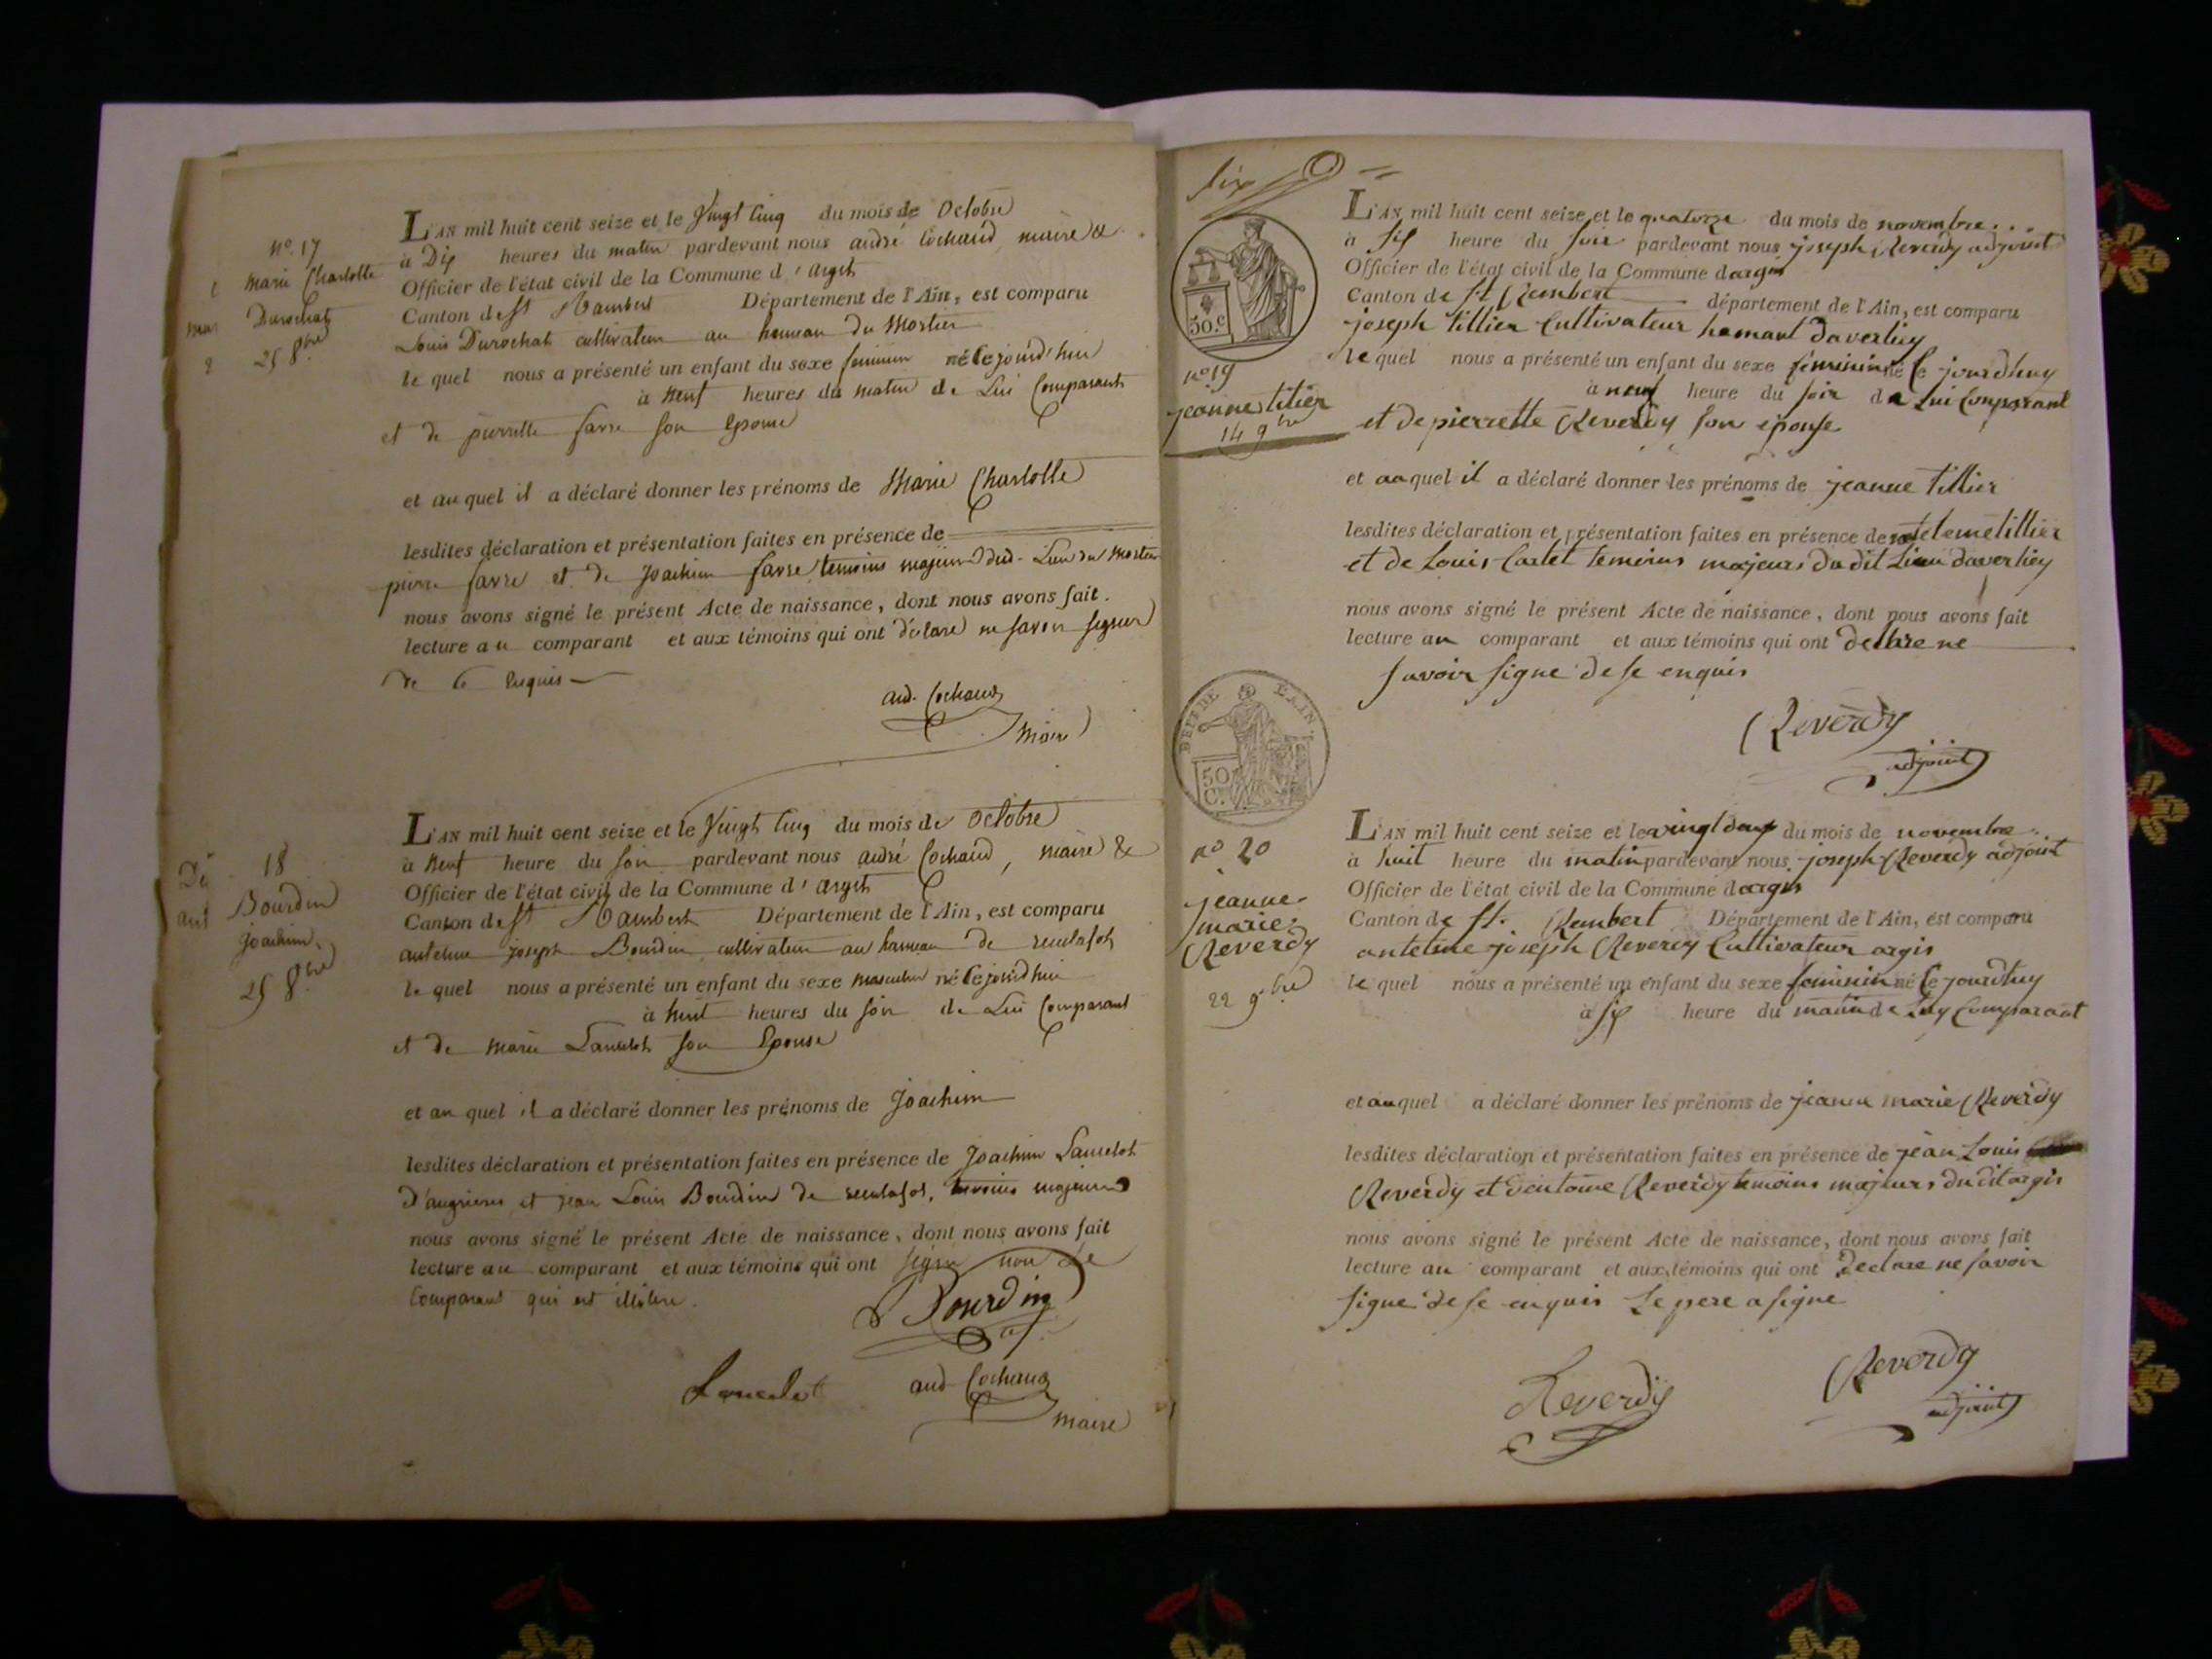 nº 17
Marie Charlotte
Durochat
25 8bre
L'AN mil huit cent seize et le Vingt Cinq du mois de Octobre
à Dix heures du matin pardevant nous andré Cochaud, maire &
Officier de l'état civil de la Commune d'argit
Canton de St Rambert Département de l'Ain, est comparu
Louis Durochat cultivateur au hameau du Mortier
le quel nous a présenté un enfant du sexe feminin né Cejourd'hui
à neuf heures du matin de Lui Comparant
et de pierrette favre son Epouse
et au quel il a déclaré donner les prénoms de Marie Charlotte
lesdites déclaration et présentation faites en présence de
pierre favre et de Joachim favre temoins majeurs dud. Lieu du Mortier
nous avons signé le présent Acte de naissance, dont nous avons fait
lecture au comparant et aux témoins qui ont déclaré ne savoir signer
de ce Enquis
and. Cochaud
Maire
18
Bourdin
Joachim
25 8bre
L'AN mil huit cent seize et le Vingt Cinq du mois de Octobre
à neuf heure du soir pardevant nous andré Cochaud, maire &
Officier de l'état civil de la Commune d'argit
Canton de St Rambert Département de l'Ain, est comparu
antelme joseph Bourdin cultivateur au hameau de reculafol
le quel nous a présenté un enfant du sexe masculin né Cejourd'hui
à huit heures du soir de Lui Comparant
et de marie Lancelot son Epouse
et au quel il a déclaré donner les prénoms de Joachim
lesdites déclaration et présentation faites en présence de Joachim Lancelot
d'augrieres et jean Louis Bourdin de reculafol, temoins majeurs
nous avons signé le présent Acte de naissance, dont nous avons fait
lecture au comparant et aux témoins qui ont signé non le
Comparant qui est illitere.
Bourdin
Lancelot
and Cochaud
maire
six
50 c
nº 19
jeanne titier
14 9bre
L'AN mil huit cent seize et le quatorze du mois de novembre
à six heure du soir pardevant nous joseph Reverdy adjoint
Officier de l'état civil de la Commune dargis
Canton de St Rembert département de l'Ain, est comparu
joseph tillier Cultivateur hamant daverliey
le quel nous a présenté un enfant du sexe feminin né Ce jourdhuy
à neuf heure du soir de Lui Comparant
et de pierrette Reverdy son epouse
et au quel il a déclaré donner les prénoms de jeanne tillier
lesdites déclaration et présentation faites en présence de anteleme tillier
et de Louis Castet temoins majeurs du dit Lieu daverliey
nous avons signé le présent Acte de naissance, dont nous avons fait
lecture au comparant et aux témoins qui ont declare ne
savoir signe de se enquis
Reverdy
adjoint
DEPT DE L'AIN
50
C.
nº 20
jeanne
marie
Reverdy
22 9bre
L'AN mil huit cent seize et le vingt deux du mois de novembre
à huit heure du matin pardevant nous joseph Reverdy adjoint
Officier de l'état civil de la Commune dargis
Canton de St. Rembert Département de l'Ain, est comparu
antelme joseph Reverdy Cultivateur argis
le quel nous a présenté un enfant du sexe feminin né Ce jourdhuy
à six heure du matin de Luy Comparant
et au quel a déclaré donner les prénoms de jeanne marie Reverdy
lesdites déclaration et présentation faites en présence de jean Louis
Reverdy et Reverdy temoins majeurs du dit argis
nous avons signé le présent Acte de naissance, dont nous avons fait
lecture au comparant et aux témoins qui ont declare ne savoir
signe de se enquis Le pere a signe
Reverdy
Reverdy
adjoint